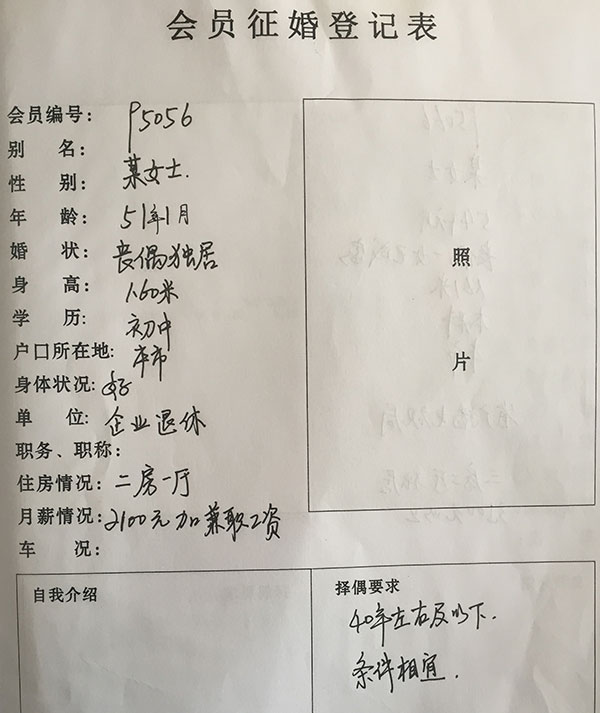 会员征婚登记表
会员编号: P5056
别 名:
性 别: 某女士.
年 龄: 51年1月
婚 状: 丧偶独居
身 高: 1.60米
学 历: 初中
户口所在地: 本市
身体状况: 好
单 位: 企业退休
职务、职称:
住房情况: 二房一厅
月薪情况: 2100元加兼职工资
车 况:
照
片
自我介绍
择偶要求
40年左右及以下.
条件相宜.